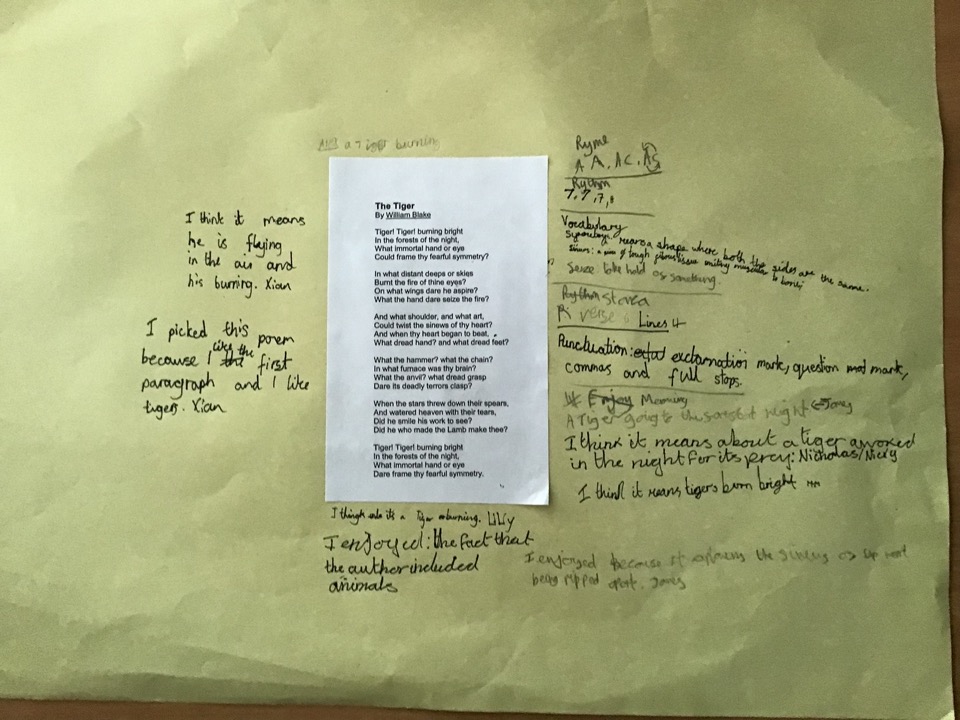 a Tiger burning
The Tiger
By William Blake
Tiger! Tiger! burning bright
In the forests of the night,
What immortal hand or eye
Could frame thy fearful symmetry?
In what distant deeps or skies
Burnt the fire of thine eyes?
On what wings dare he aspire?
What the hand dare seize the fire?
And what shoulder, and what art,
Could twist the sinews of thy heart?
And when thy heart began to beat,
What dread hand? and what dread feet?
What the hammer? what the chain?
In what furnace was thy brain?
What the anvil? what dread grasp
Dare its deadly terrors clasp?
When the stars threw down their spears,
And watered heaven with their tears,
Did he smile his work to see?
Did he who made the Lamb make thee?
Tiger! Tiger! burning bright
In the forests of the night,
What immortal hand or eye
Dare frame thy fearful symmetry.
I think it means
he is flying
in the air and
his burning. Xian
I picked this
poem
because I like the first
paragraph and I like
tigers. Xian
Ryme
A A, AC, AS
Rythm
7, 7, 7, 8
Vocabulary
means a shape where both the sides are the same.
Sinews: a of tough tissue uniting muscular to bone;
seize take hold of something.
verse 6 Lines 4
Punctuation: exclamation mark, question mark,
commas and full stops.
Enjoy Meaning
A Tiger going to the at night
I think it means about a tiger awoked
in the night for its prey: Nicholas/Nicky
I think it means tigers burn bright
I think its a Tiger burning. Lilly
I enjoyed: the fact that
the author included
animals
I enjoyed because it explains the of
being ripped apart.